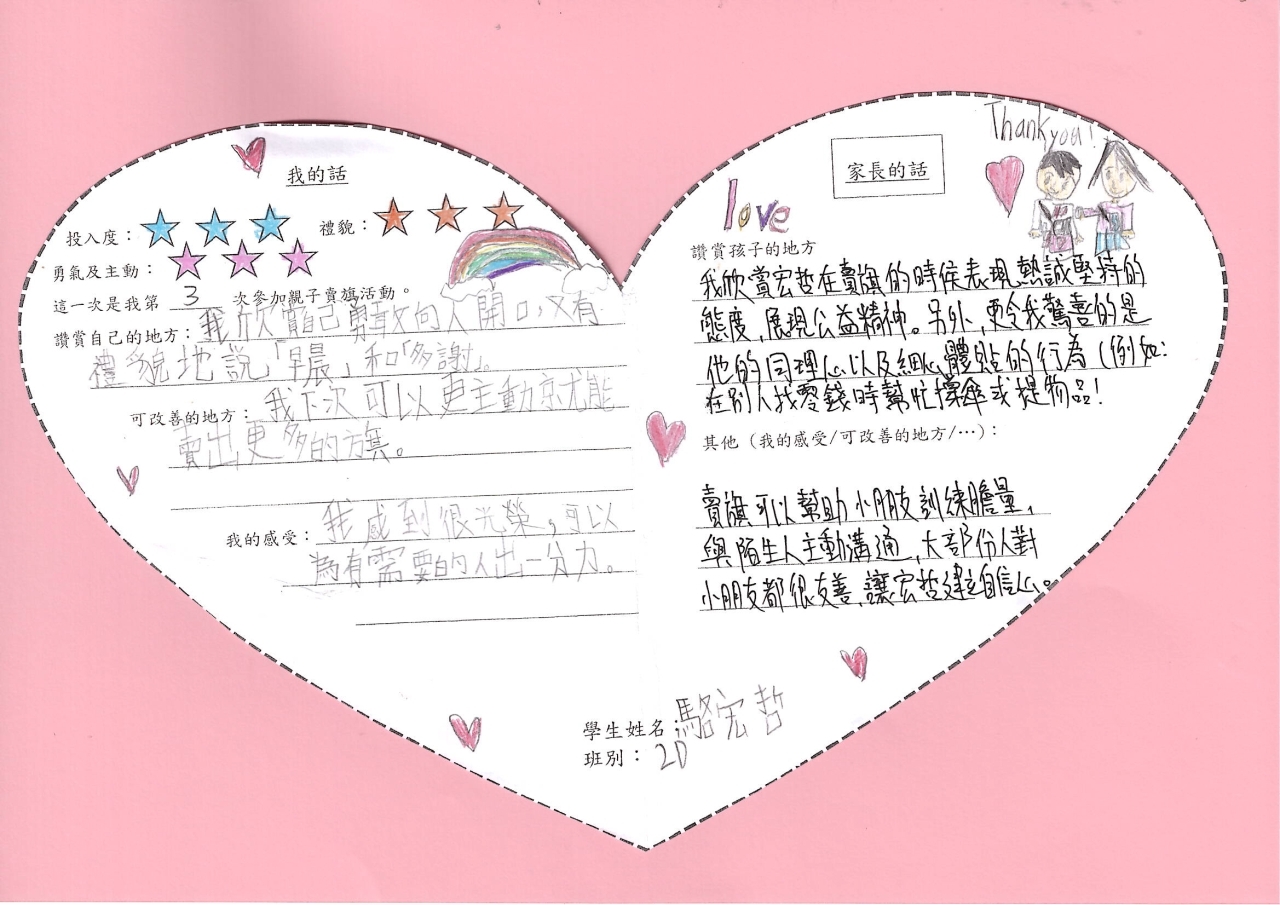 我的話
投入度： 禮貌：
勇氣及主動：
這一次是我第 3 次參加親子賣旗活動。
讚賞自己的地方：我欣賞自己勇敢向人開口，又有
禮貌地說「早晨」和「多謝」。
可改善的地方：我下次可以更主動京尤能
賣出更多的旗。
我的感受：我感到很光榮，可以
為有需要的人出一分力。
家長的話
Thank you!
love
讚賞孩子的地方
我欣賞宏哲在賣旗的時侯表現熱誠堅持的
態度，展現公益精神。另外，更令我驚喜的是
他的同理心以及細心體貼的行為（例如:
在別人找零錢時幫忙撐傘或提物品!
其他（我的感受/可改善的地方/…）：
賣旗可以幫助小朋友訓練膽量，
與陌生人主動溝通，大部份人對
小朋友都很友善，讓宏哲建立自信心。
學生姓名：駱宏哲
班別：2D